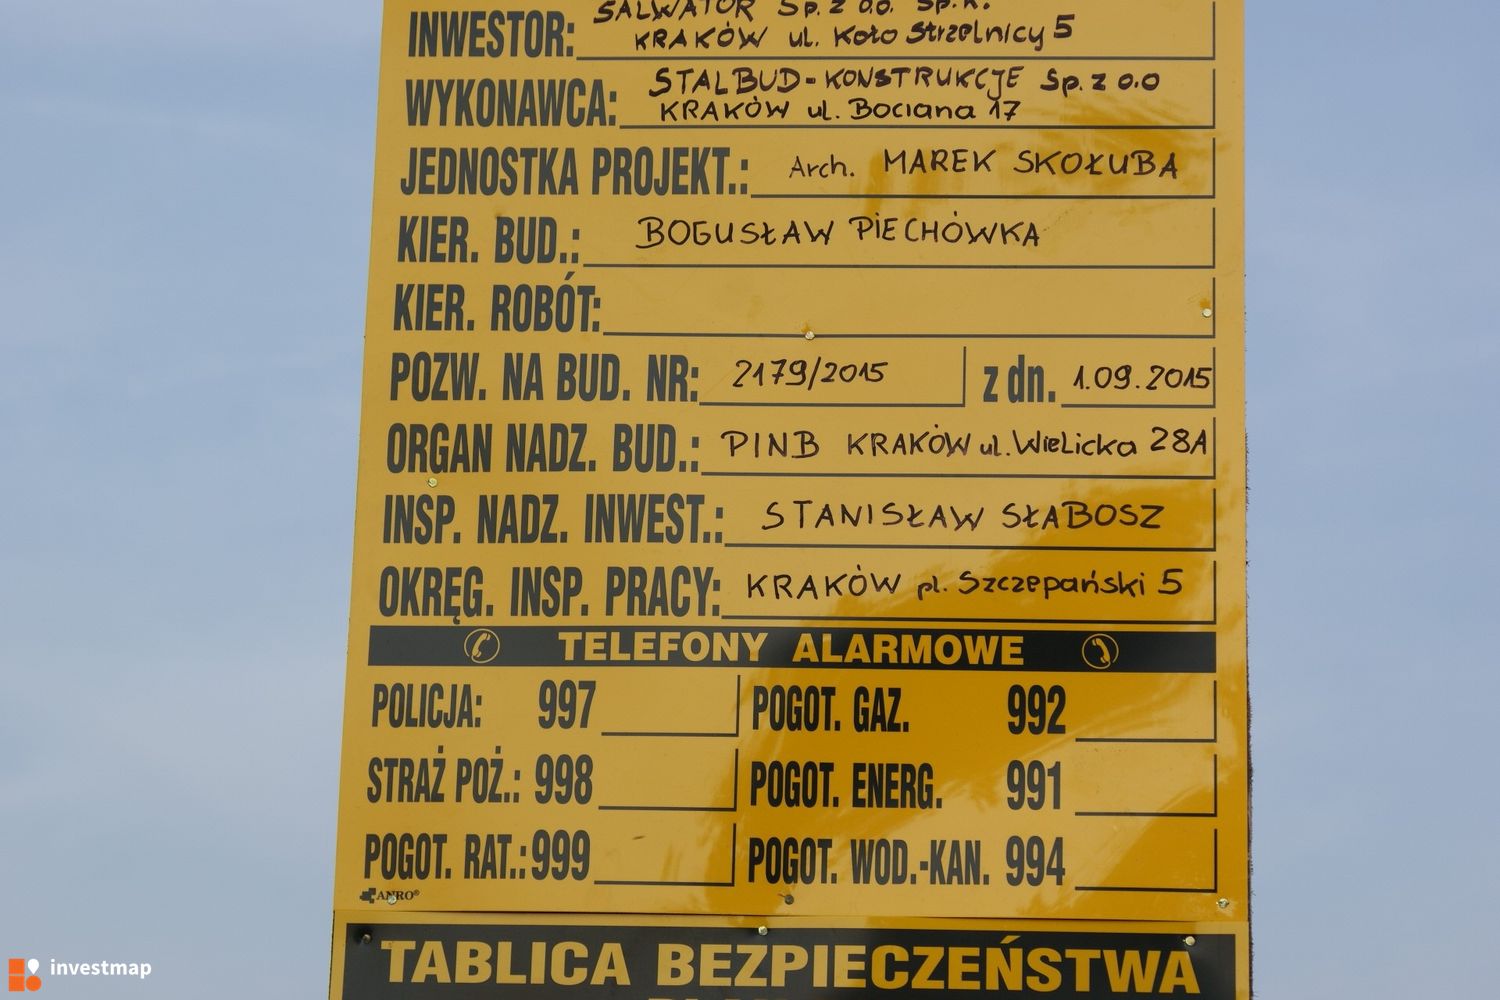 SALWATOR Sp. z o.o. Sp. K.
INWESTOR: KRAKÓW ul. Koło Strzelnicy 5
STALBUD-KONSTRUKCJE Sp. z o.o
WYKONAWCA: KRAKÓW ul. Bociana 17
JEDNOSTKA PROJEKT.: Arch. MAREK SKOŁUBA
KIER. BUD.: BOGUSŁAW PIECHÓWKA
KIER. ROBÓT:
POZW. NA BUD. NR: 2179/2015 z dn. 1.09.2015
ORGAN NADZ. BUD.: PINB KRAKÓW ul. Wielicka 28A
INSP. NADZ. INWEST.: STANISŁAW SŁABOSZ
OKRĘG. INSP. PRACY: KRAKÓW pl. Szczepański 5
TELEFONY ALARMOWE
POLICJA: 997 POGOT. GAZ. 992
STRAŻ POŻ.: 998 POGOT. ENERG. 991
POGOT. RAT.: 999 POGOT. WOD.-KAN. 994
ANRO®
TABLICA BEZPIECZEŃSTWA
investmap